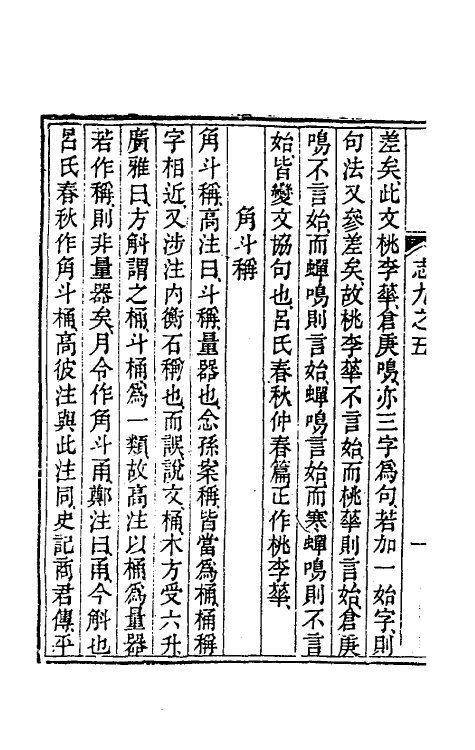 志九之五
一
差矣此文桃李華倉庚鳴亦三字爲句若加一始字則
句法又參差矣故桃李華不言始而桃華則言始倉庚
鳴不言始而蟬鳴則言始蟬鳴言始而寒蟬鳴則不言
始皆變文協句也呂氏春秋仲春篇正作桃李華
角斗稱
角斗稱高注曰斗稱量器也念孫案稱皆當爲桶桶稱
字相近又涉注內衡石稱也而誤說文桶木方受六升
廣雅曰方斛謂之桶斗桶爲一類故高注以桶爲量器
若作稱則非量器矣月令作角斗甬鄭注曰甬今斛也
呂氏春秋作角斗桶高彼注與此注同史記商君傳平